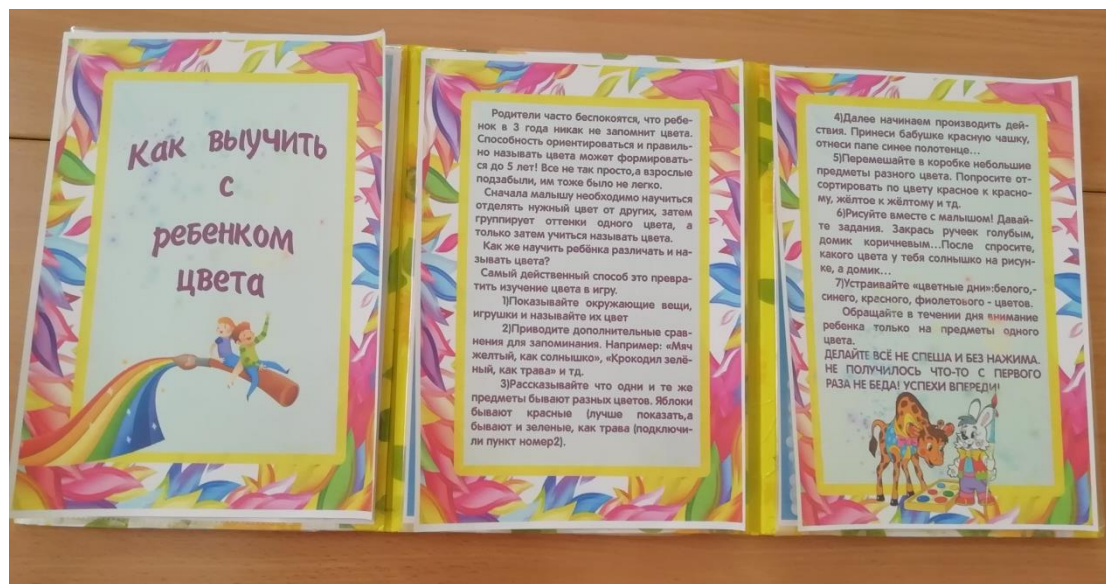 Как выучить
с
ребенком
цвета
Родители часто беспокоятся, что ребе-
нок в 3 года никак не запомнит цвета.
Способность ориентироваться и правиль-
но называть цвета может формировать-
ся до 5 лет! Все не так просто,а взрослые
подзабыли, им тоже было не легко.
Сначала малышу необходимо научиться
отделять нужный цвет от других, затем
группирует оттенки одного цвета, а
только затем учиться называть цвета.
Как же научить ребёнка различать и на-
зывать цвета?
Самый действенный способ это превра-
тить изучение цвета в игру.
1)Показывайте окружающие вещи,
игрушки и называйте их цвет
2)Приводите дополнительные срав-
нения для запоминания. Например: «Мяч
желтый, как солнышко», «Крокодил зелё-
ный, как трава» и тд.
3)Рассказывайте что одни и те же
предметы бывают разных цветов. Яблоки
бывают красные (лучше показать,а
бывают и зеленые, как трава (подключи-
ли пункт номер2).
4)Далее начинаем производить дей-
ствия. Принеси бабушке красную чашку,
отнеси папе синее полотенце...
5)Перемешайте в коробке небольшие
предметы разного цвета. Попросите от-
сортировать по цвету красное к красно-
му, жёлтое к жёлтому и тд.
6)Рисуйте вместе с малышом! Давай-
те задания. Закрась ручеек голубым,
домик коричневым...После спросите,
какого цвета у тебя солнышко на рисун-
ке, а домик...
7)Устраивайте «цветные дни»:белого,-
синего, красного, фиолетового - цветов.
Обращайте в течении дня внимание
ребенка только на предметы одного
цвета.
ДЕЛАЙТЕ ВСЁ НЕ СПЕША И БЕЗ НАЖИМА.
НЕ ПОЛУЧИЛОСЬ ЧТО-ТО С ПЕРВОГО
РАЗА НЕ БЕДА! УСПЕХИ ВПЕРЕДИ!